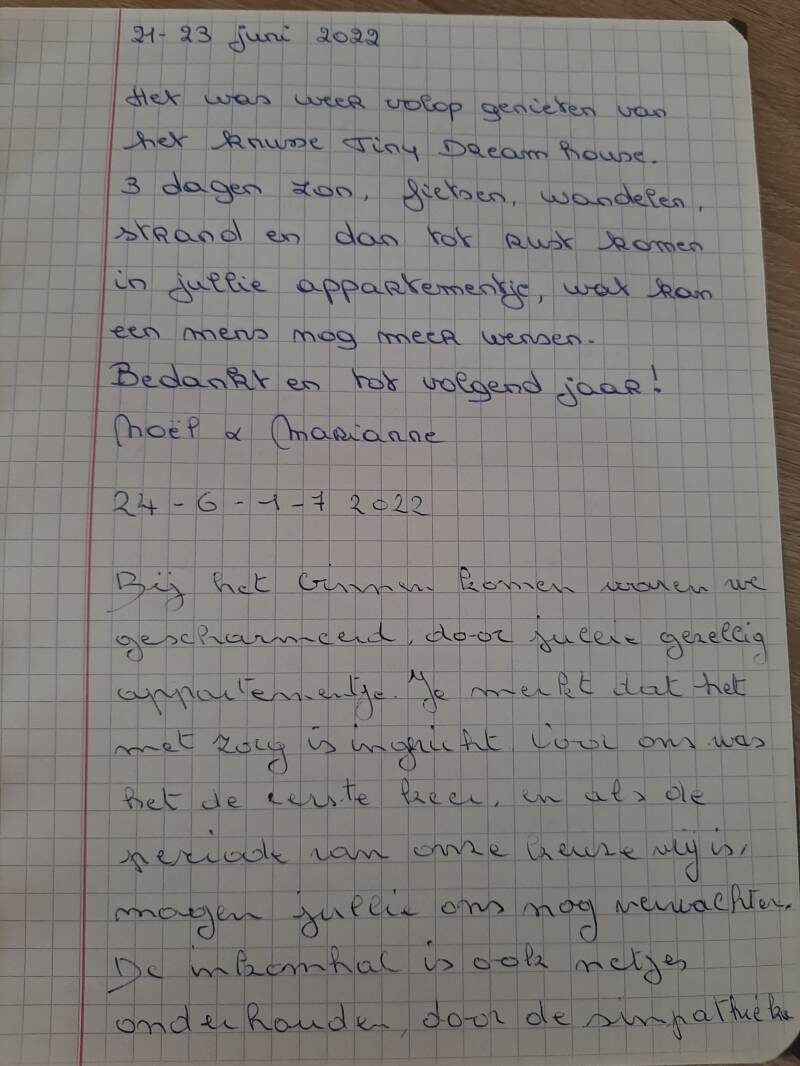 21-23 juni 2022
Het was weer volop genieten van
het knusse Tiny Dream house.
3 dagen zon, fietsen, wandelen,
strand en dan tot rust komen
in jullie appartementje, wat kan
een mens nog meer wensen.
Bedankt en tot volgend jaar!
Noël & Marianne
24-6-1-7 2022
Bij het binnen komen waren we
gescharmeerd, door jullie gezellig
appartementje. Je merkt dat het
met zorg is ingricht. Voor ons was
het de eerste keer, en als de
periode van onze keuze vrij is,
mogen jullie ons nog verwachten.
De inkomhal is ook netjes
onderhouden, door de simpathieke